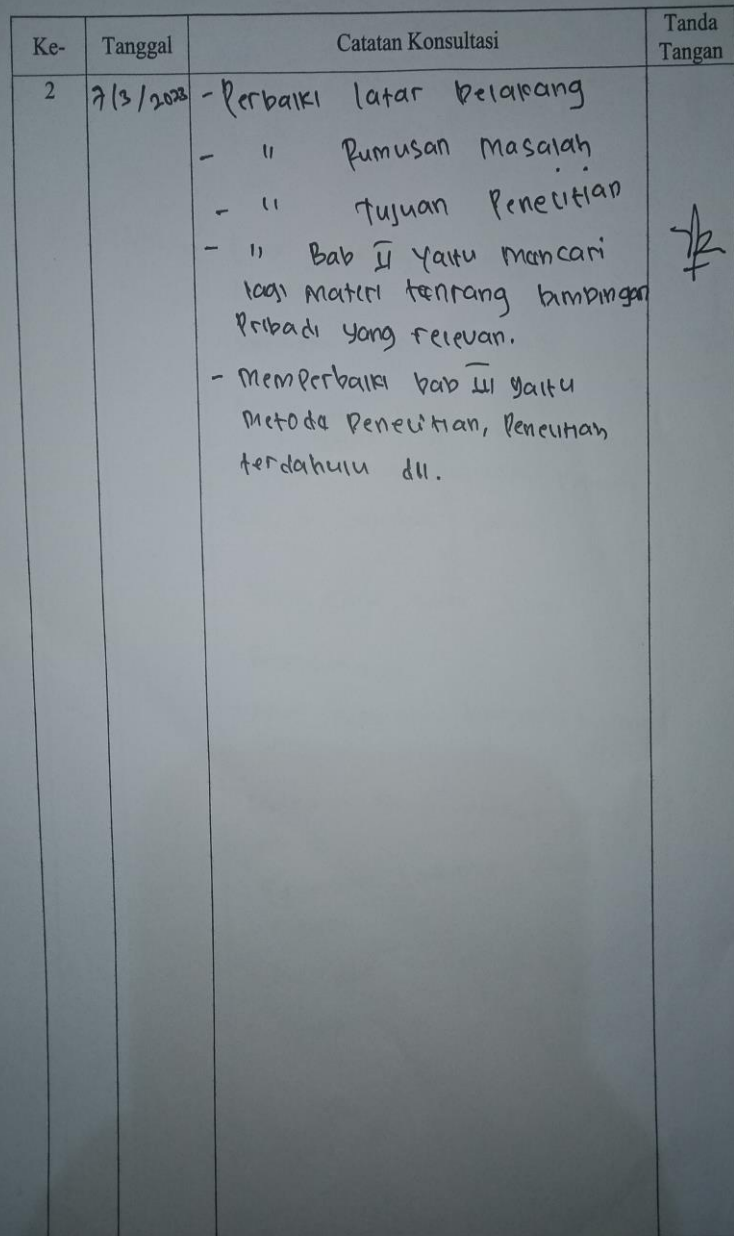 Ke- Tanggal Catatan Konsultasi Tanda Tangan
2 7/3/2023 - Perbaiki latar belakang
- " Rumusan Masalah
- " Tujuan Penelitian
- " Bab II yaitu mancari
lagi materi tentang bimbingan
Pribadi yang relevan.
- Memperbaiki bab III yaitu
Metoda Penelitian, Penelitian
terdahulu dll.